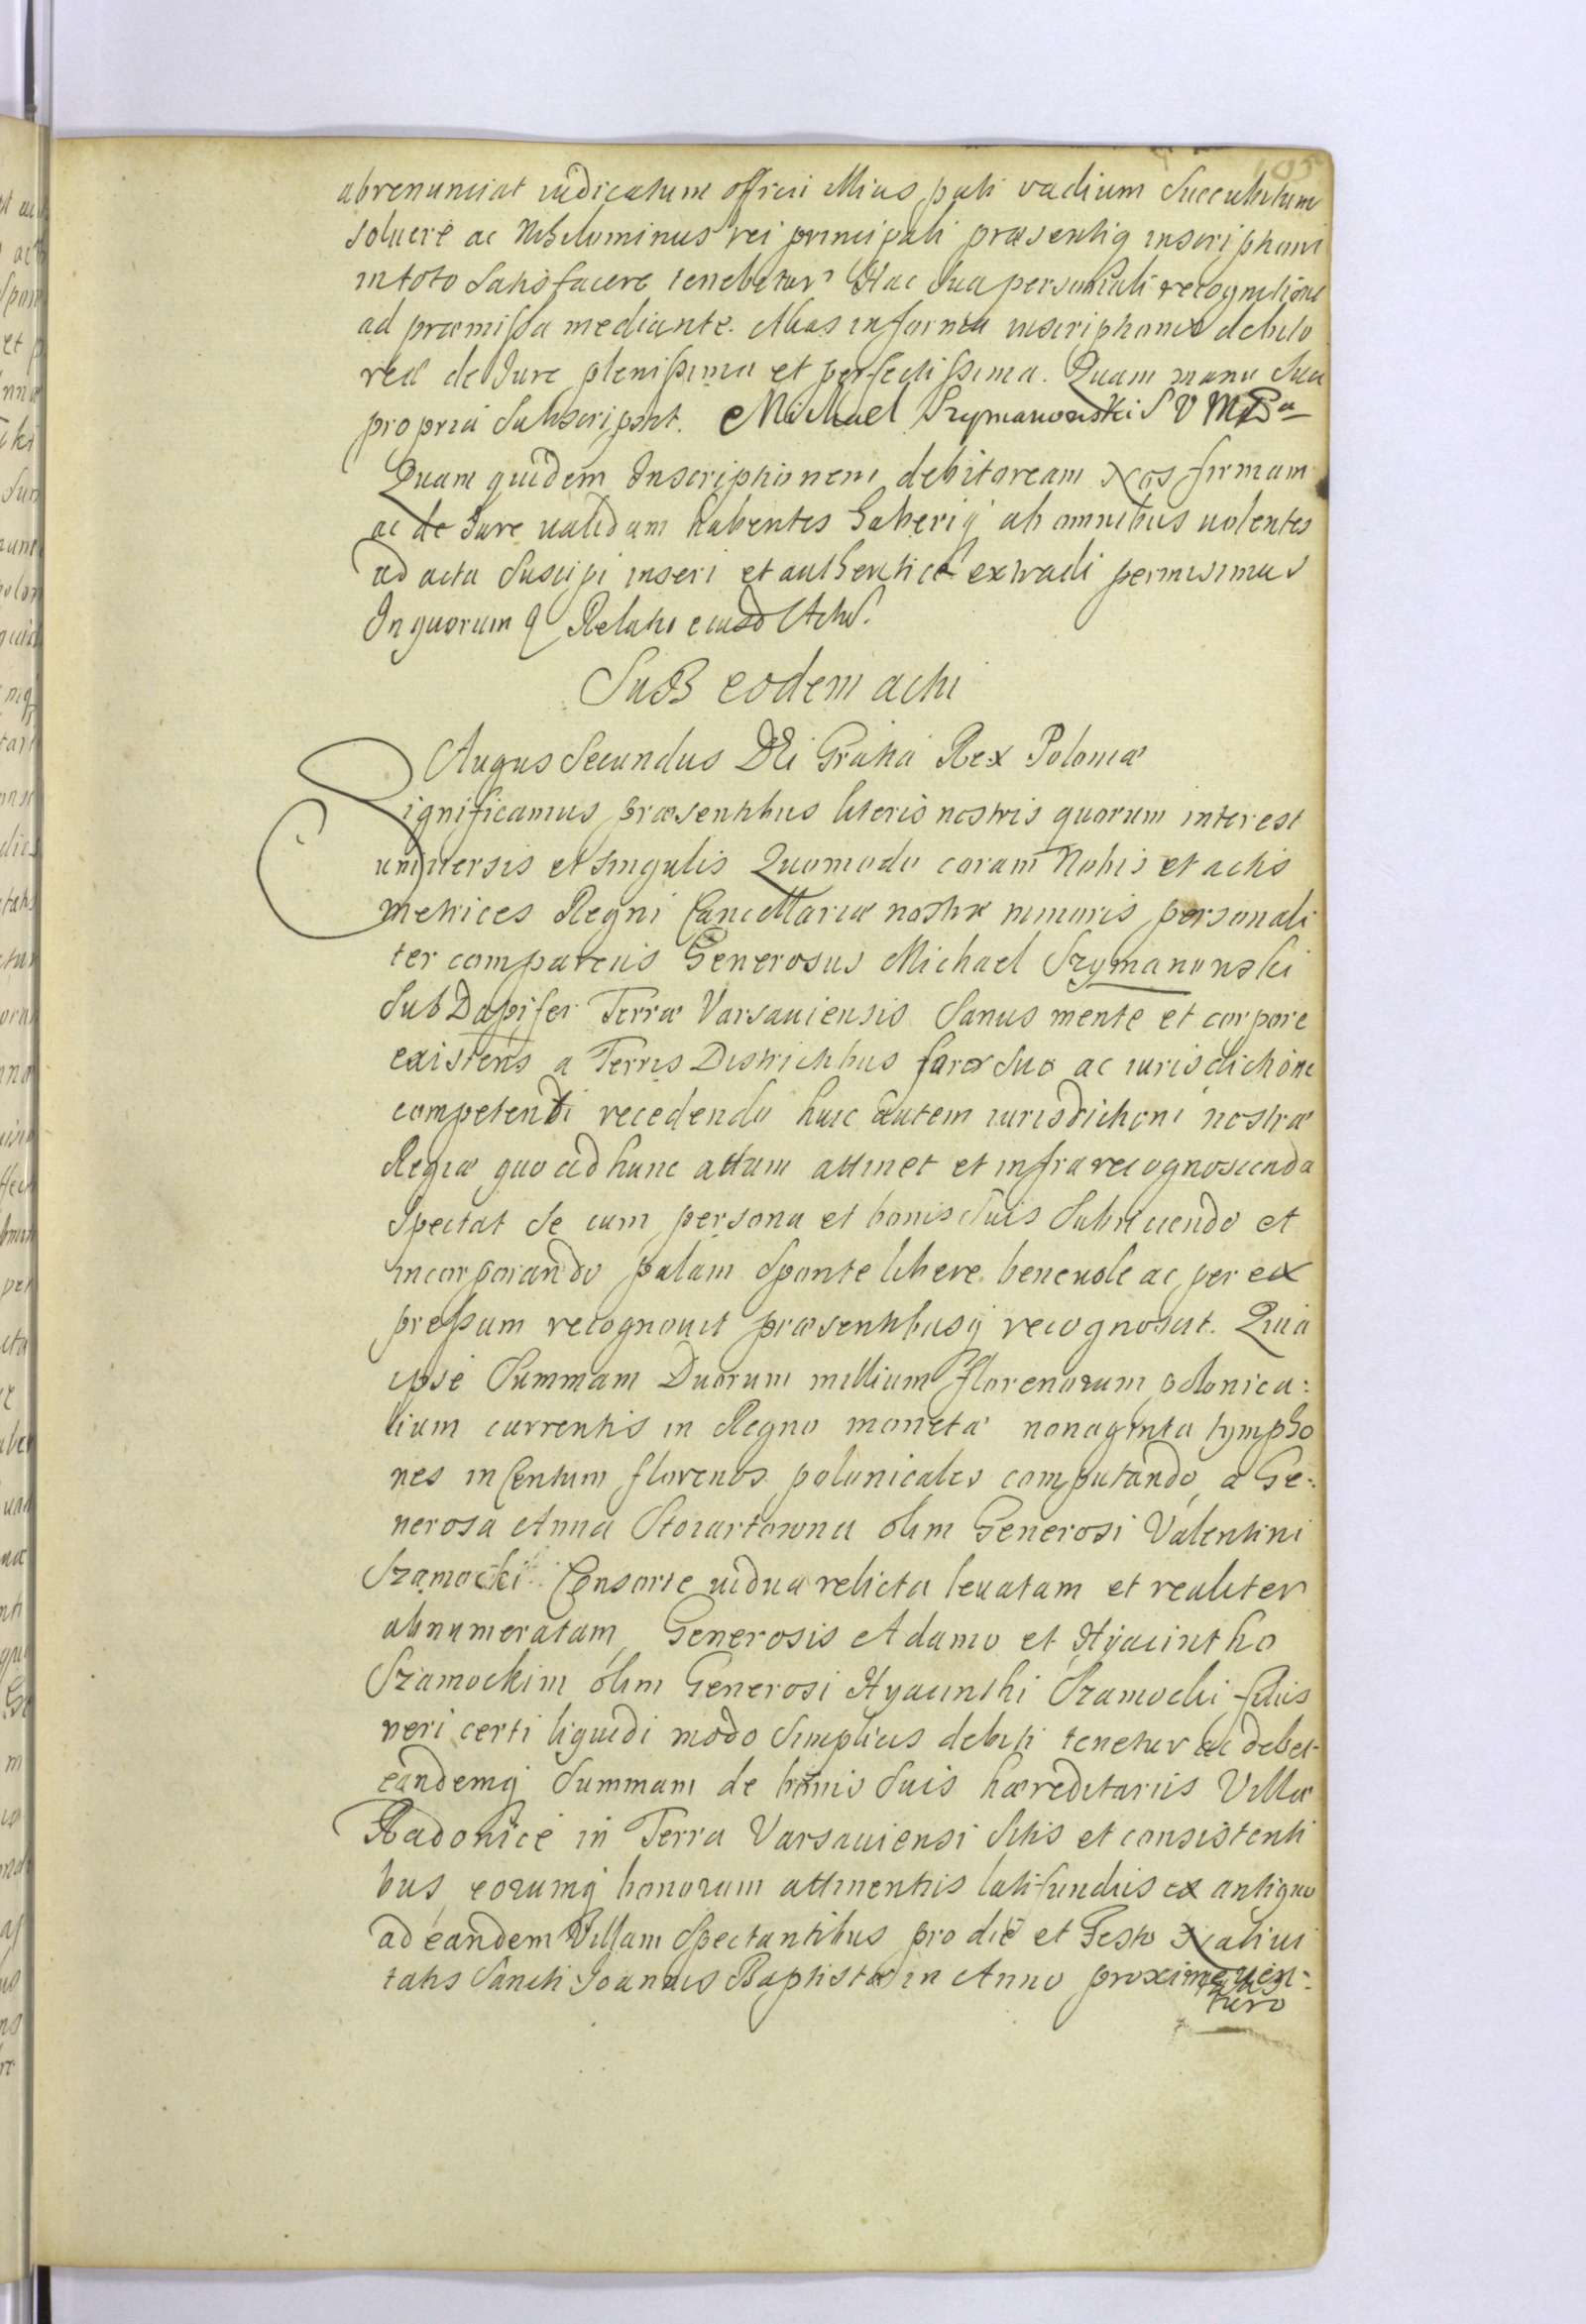 105
abrenunciat iudicatum officii illius pati vadium succubitum
soluere ac nihilominus rei principali præsentiq inscriptioni
in toto satisfacere tenebitur Hac sua personali recognitione
ad præmissa mediante. Alias in forma inscriptionis debito
rea de Jure plenissima et perfectissima. Quam manu sua
propria subscripsit. Michael Szymanowski S V
Quam quidem Inscriptionem debitoream Nos firmam
ac de Jure ualidam habentes haberiq ab omnibus uolentes
ad acta suscipi inseri et authentice extradi permisimus
In quorum Relatio eiusd
SuB eodem acti
Augus Secundus DEi Gratia Rex Poloniæ
Significamus præsentibus literis nostris quorum interest
uniuersis et singulis Quomodo coram Nobis et actis
metrices Regni Cancellariæ nostræ minoris personali
ter comparens Generosus Michael Szymanowski
SubDapifer Terræ Varsauiensis sanus mente et corpore
existens a Terris Districtibus foro suo ac iurisdictione
competenti recedendo huic autem iurisdictioni nostræ
Regiæ quo ad hunc attum attinet et infra recognoscenda
spectat se cum persona et bonis suis subiiciendo et
incorporando palam sponte libere beneuole ac per ex
pressum recognouit præsentibusq recognoscit. Quia
ipse Summam Duorum millium florenorum polonica:
lium currentis in Regno moneta nonaginta tympho
nes in Centum florenos polonicales computando, a Ge:
nerosa Anna olim Generosi Valentini
Szamocki Consorte uidua relicta leuatam et realiter
abnumeratam, Generosis Adamo et Hyacintho
Szamockim olim Generosi Hyacinthi Szamocki filiis
veri certi liquidi modo simplicis debiti tenetur ac debet
eandemq summam de bonis suis hæreditariis Villæ
Radonice in Terra Varsauiensi sitis et consistenti
bus, eorumq bonorum attinentiis latifundiis ex antiquo
ad eandem Villam spectantibus pro die et Festo Natiui
tatis Sancti Joannis Baptistæ in Anno proxime uen-
turo